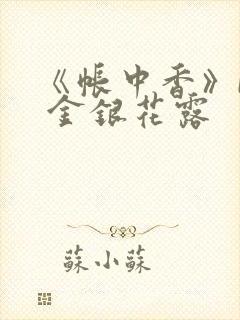 《帳中香》
金銀花露
蘇小蘇